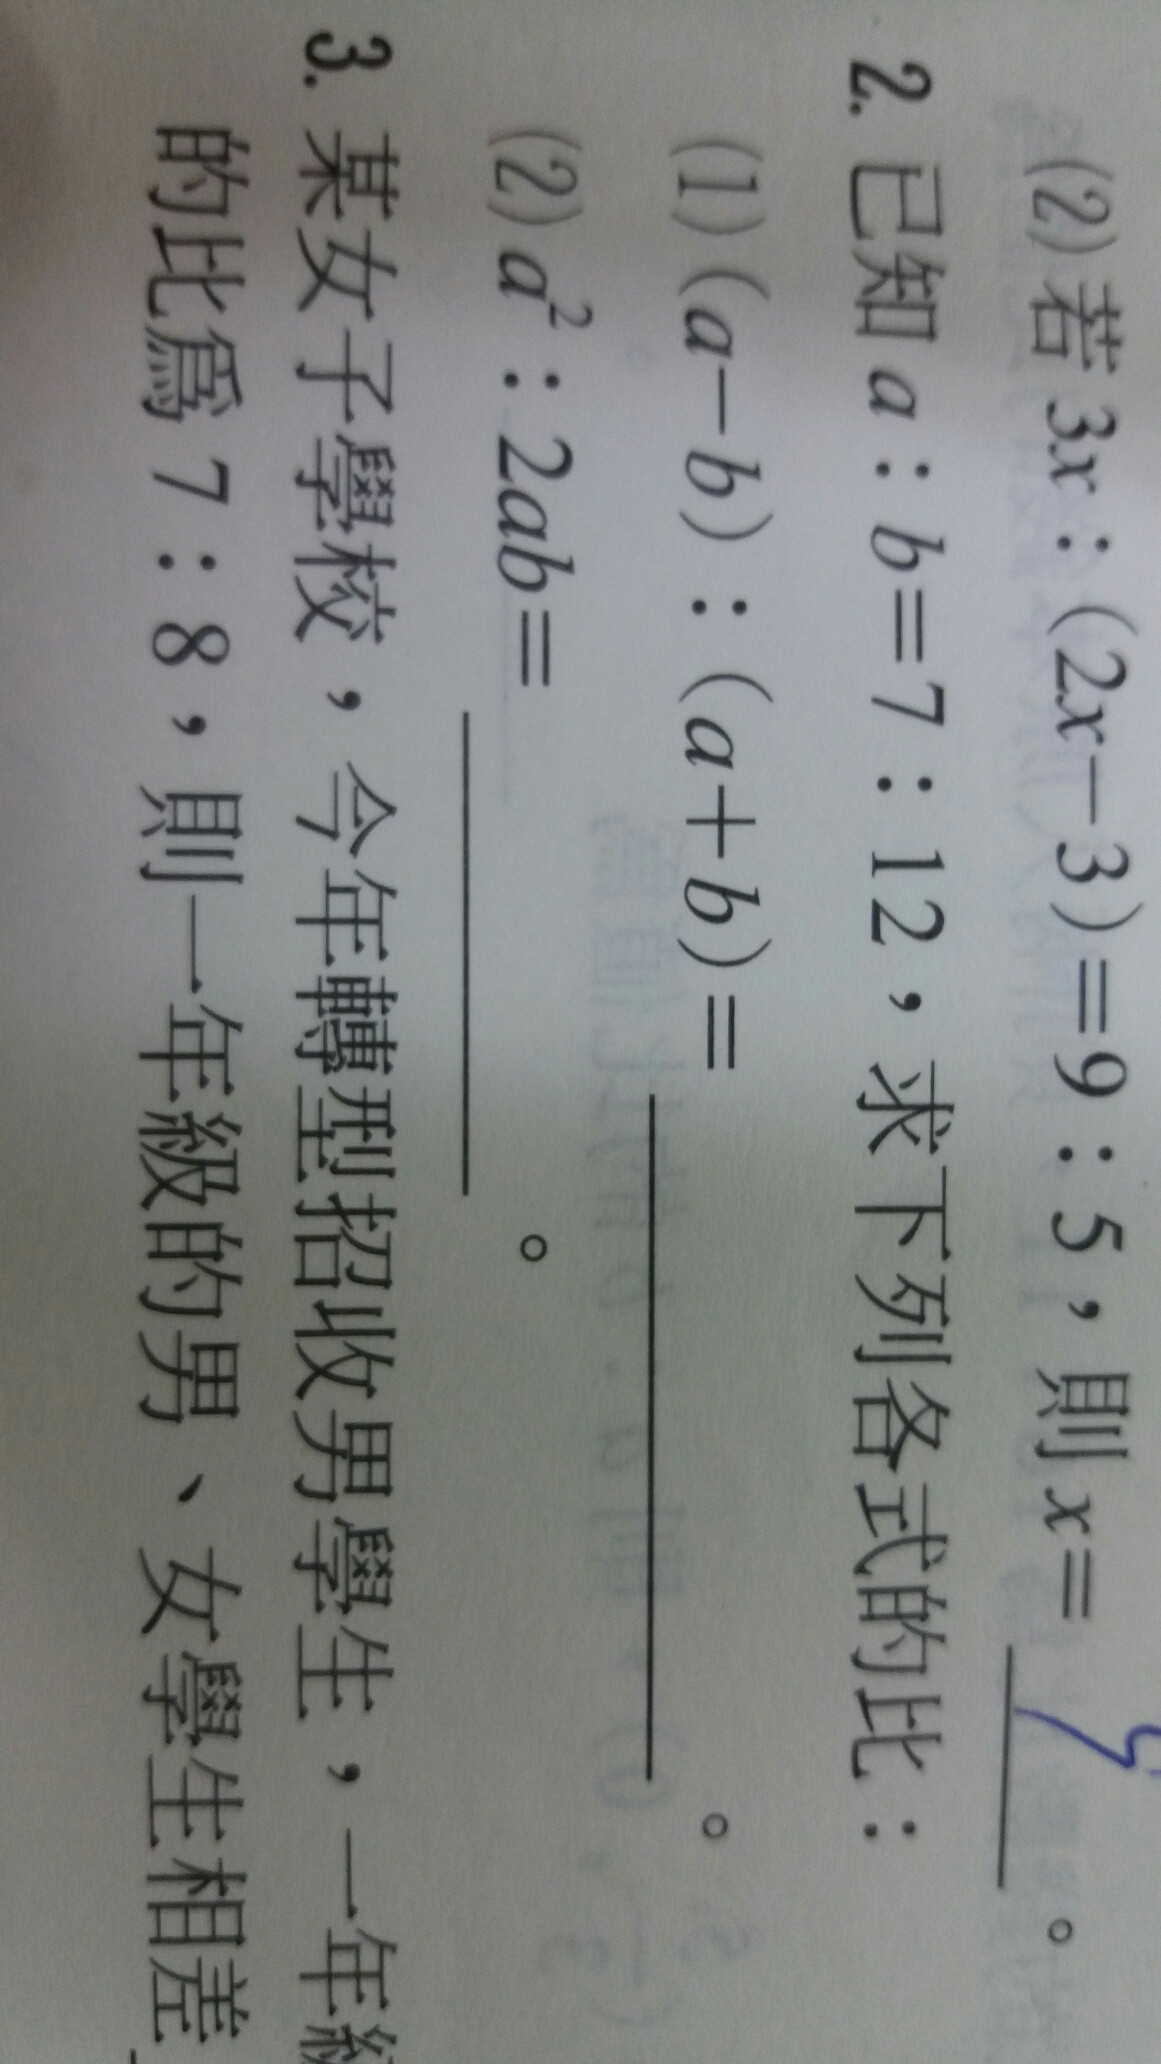 (2)若 3x：(2x－3)＝9：5，則 x＝9。
2. 已知 a：b＝7：12，求下列各式的比：
(1)(a－b)：(a＋b)＝＿＿＿＿。
(2)a²：2ab＝＿＿＿＿。
3. 某女子學校，今年轉型招收男學生，一年級
的比爲 7：8，則一年級的男、女學生相差